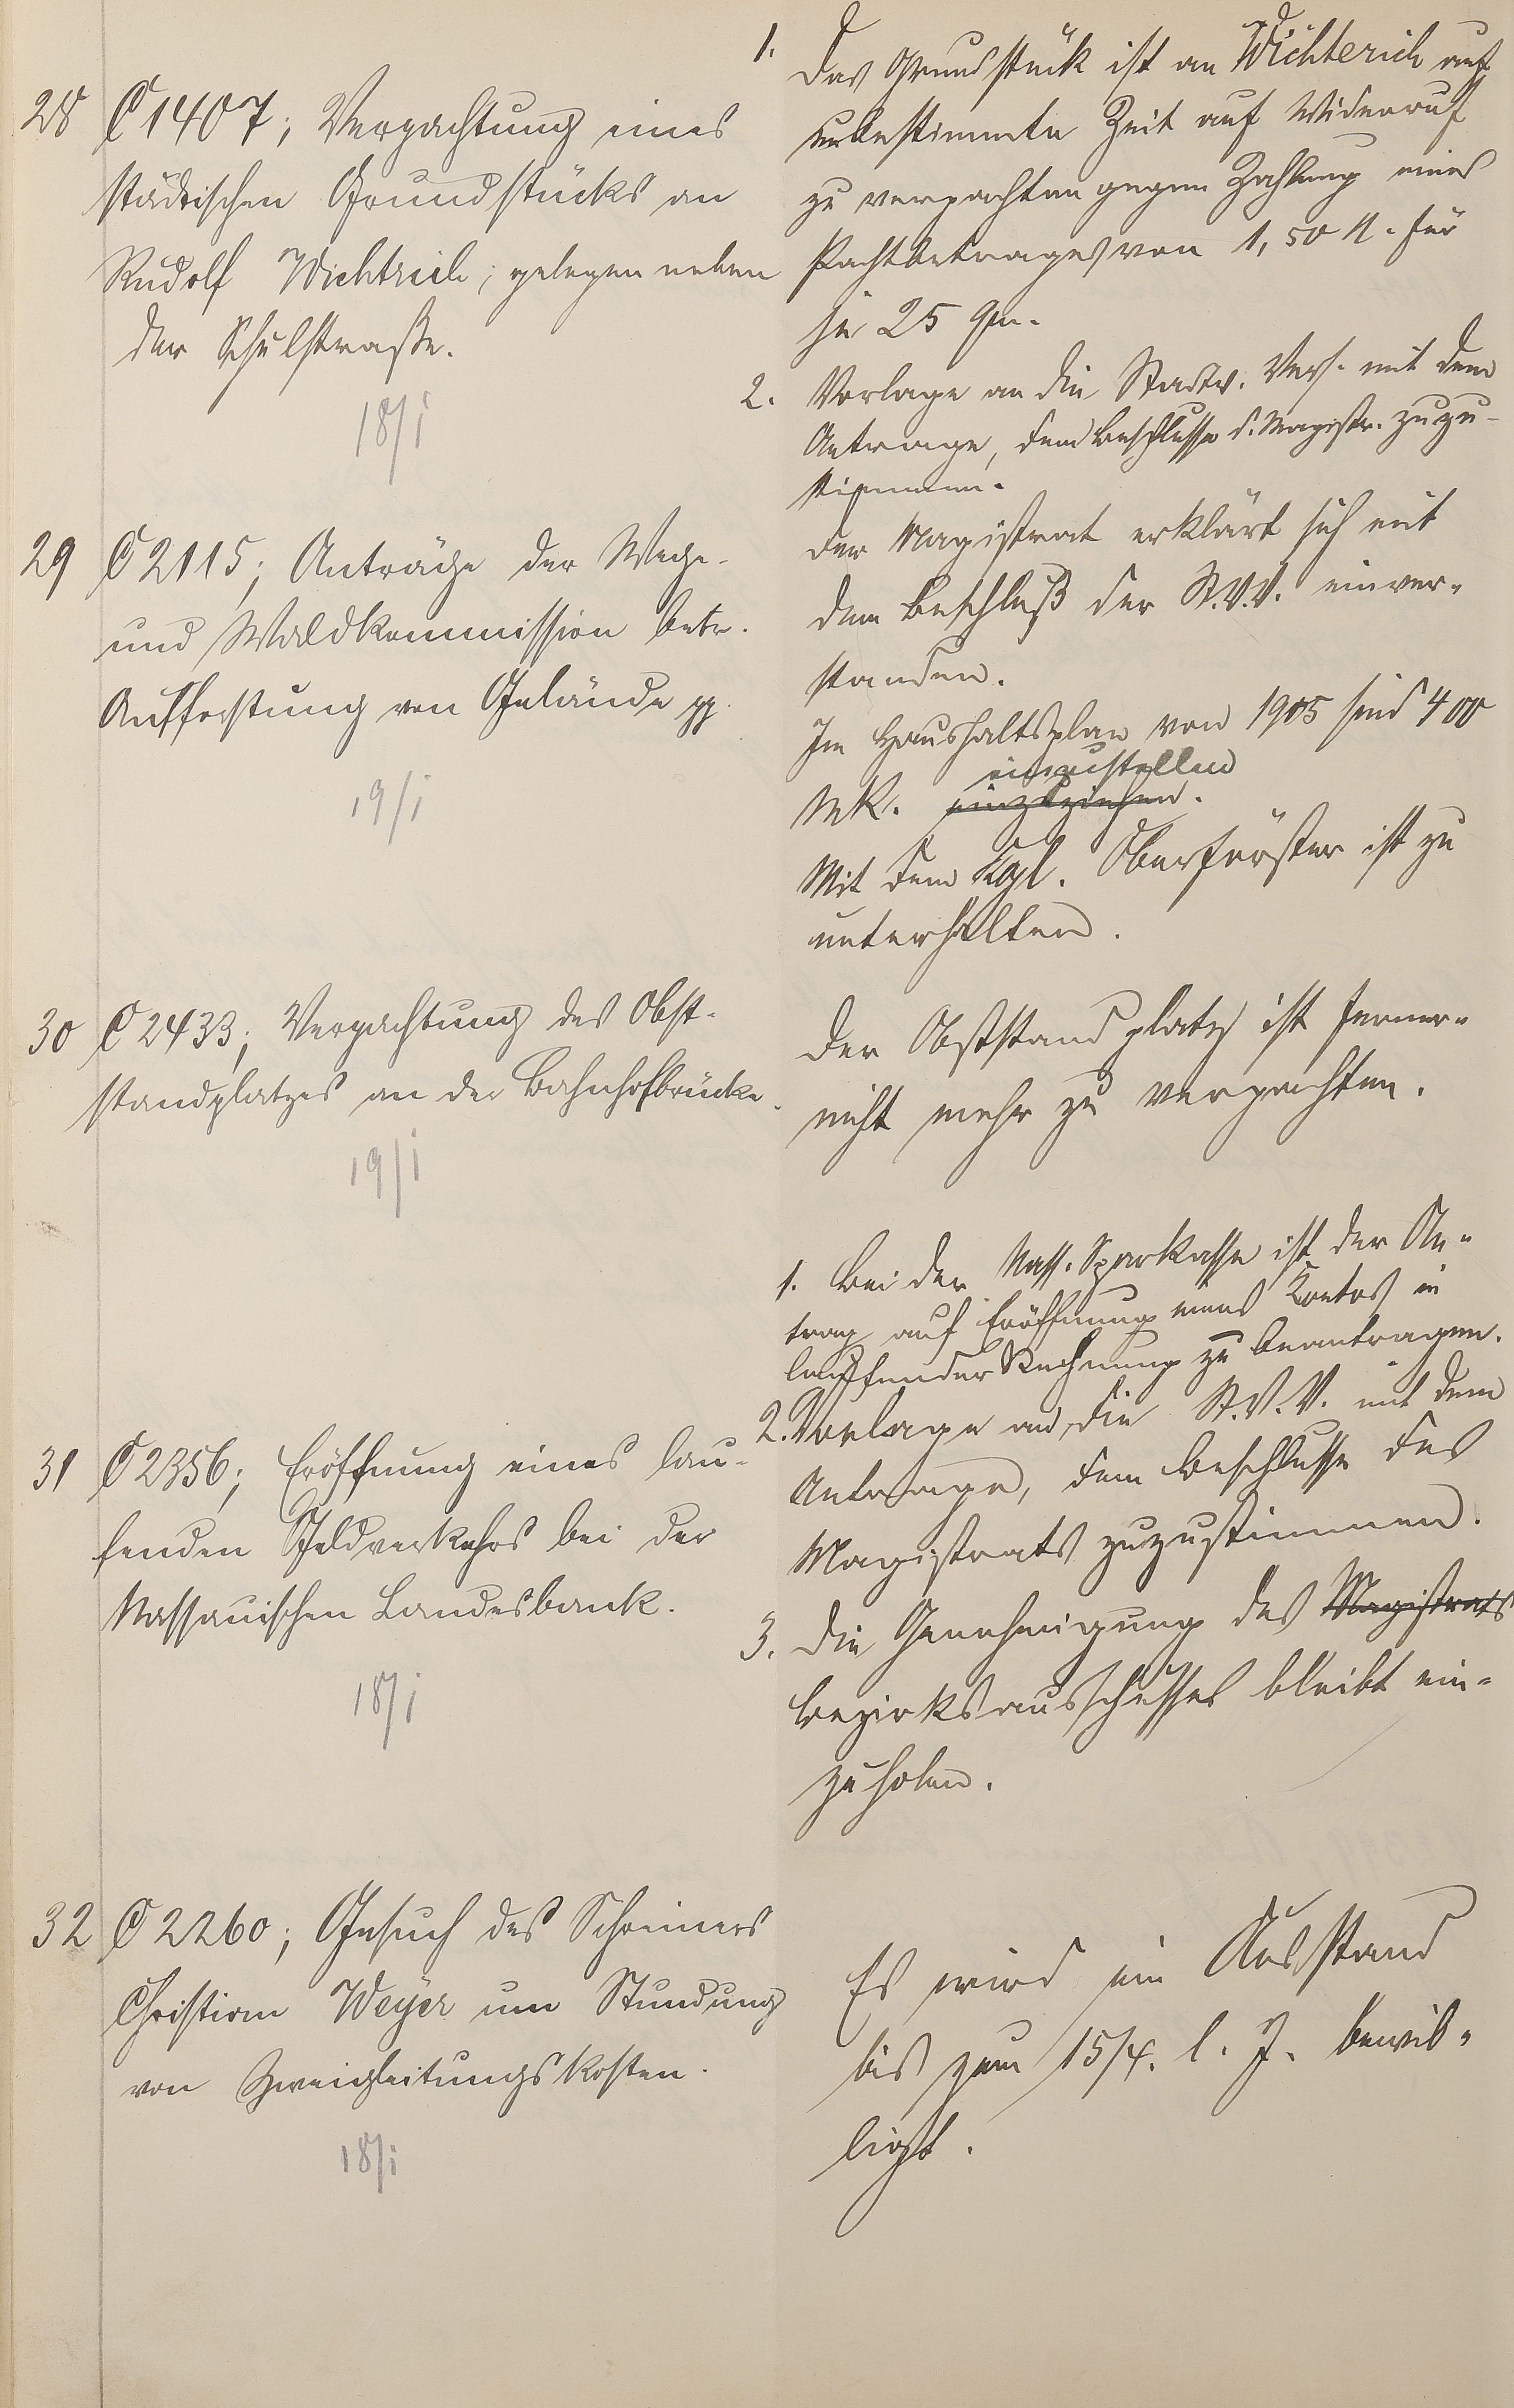 28 C 1407; Verpachtung eines
städtischen Grundstücks an
Rudolf Wichtrich; gelegen neben
der Schulstraße.
18/1
1. Das Grundstück ist an Wichterich auf
unbestimmte Zeit auf Widerruf
zu verpachten gegen Zahlung eines
Pachtbetrages von 1,50 M. für
je 25 qm.
2. Vorlage an die Stadtv. Vers. mit dem
Antrage, dem Beschlusse d. Magistr. zuzu-
stimmen.
29 C 2115; Anträge der Wege-
und Waldkommission betr.
Aufforstung von Gelände pp.
19/1
Der Magistrat erklärt sich mit
dem Beschluß der St.V.V. einver-
standen.
Im Haushaltsplan von 1905 sind 400
einzustellen
Mk. einzuziehen.
Mit dem Kgl. Oberförster ist zu
unterhalten.
30 C 2433; Verpachtung des Obst-
standplatzes an der Bahnhofbrücke.
19/1
Der Obststandplatz ist ferner-
nicht mehr zu verpachten.
31 C 2356; Eröffnung eines lau-
fenden Geldverkehrs bei der
Nassauischen Landesbank.
18/1
1. Bei der Nass. Sparkasse ist der An-
trag auf Eröffnung eines Kontos in
laufender Rechnung zu beantragen.
2. Vorlage an die St.V.V. mit dem
Antrage, dem Beschlusse des
Magistrats zuzustimmen.
3. Die Genehmigung des Magistrats
Bezirksausschusses bleibt ein-
zuholen.
32 C 2260; Gesuch des Schreiners
Christian Weyer um Stundung
von Zweigleitungskosten.
18/1
Es wird ein Ausstand
bis zum 15/4. l. J. bewil-
ligt.